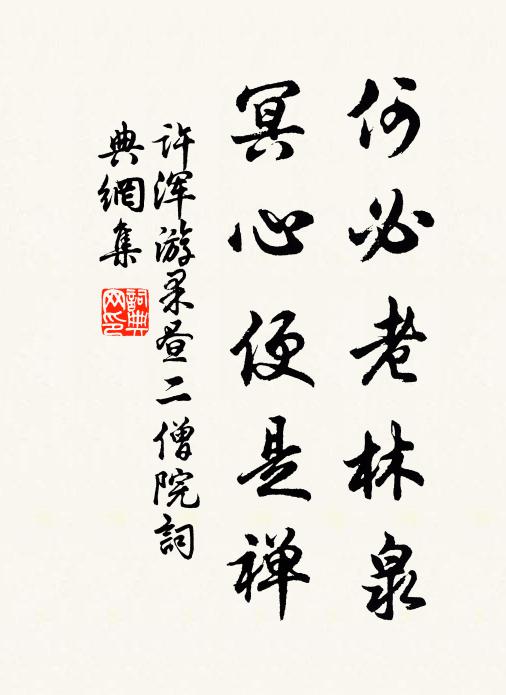 何必老林泉
冥心便是禅
许浑游果昼二僧院詞
典網集
詞典
网印